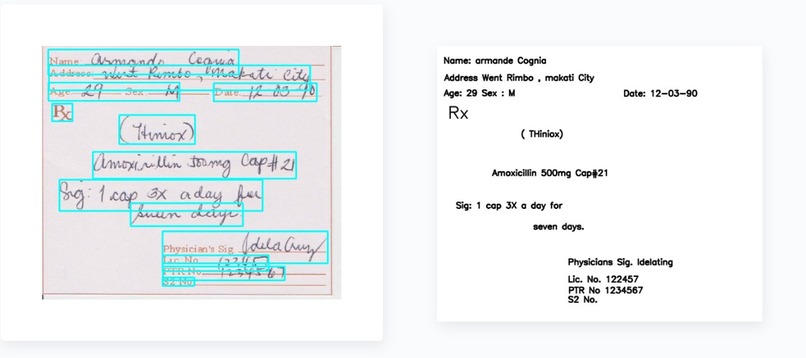 Name Armando Cognia
Address West Rimbo, Makati City
Age 29 Sex M Date 12 03 90
Rx
(Himox)
Amoxicillin 500mg Cap #21
Sig: 1 cap 3X a day for
seven days
Physician's Sig JdelaCruz
Lic No. 12345
PTR No. 1234567
S2 No.
Name: armande Cognia
Address Went Rimbo , makati City
Age: 29 Sex : M Date: 12-03-90
Rx
( THiniox)
Amoxicillin 500mg Cap#21
Sig: 1 cap 3X a day for
seven days.
Physicians Sig. Idelating
Lic. No. 122457
PTR No 1234567
S2 No.